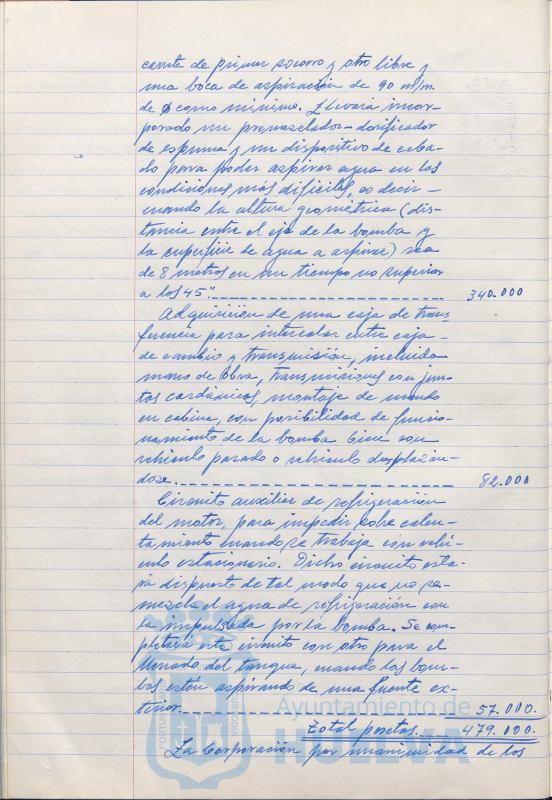 carrete de primer socorro y otro libre y
una boca de aspiración de 90 m/m.
de ø como mínimo. Llevará incor-
porado un premezclador-dosificador
de espuma y un dispositivo de ceba-
do para poder aspirar agua en las
condiciones más difíciles, es decir -
cuando la altura geométrica (dis-
tancia entre el eje de la bomba y
la superficie de agua a aspirar) sea
de 8 metros en un tiempo no superior
a los 45". 340.000
Adquisición de una caja de trans-
ferencia para intercalar entre caja -
de cambio y transmisión, incluida
mano de Obra, transmisiones con jun-
tas cardánicas montaje de mando
en cabina, con posibilidad de funcio-
namiento de la bomba bien con
vehículo parado o vehículo desplazán-
dose. 82.000
Circuito auxiliar de refrigeración
del motor, para impedir sobre calen-
tamiento cuando se trabaja con vehí-
culo estacionario. Dicho circuito esta-
rá dispuesto de tal modo que no se
mezcla el agua de refrigeración con
la impulsada por la bomba. Se com-
pletará este circuito con otro para el
llenado del tanque, cuando las bom-
bas estén aspirando de una fuente ex-
terior. 57.000.
Total pesetas. 479.000.
La Corporación por unanimidad de los
Ayuntamiento de
HUELVA